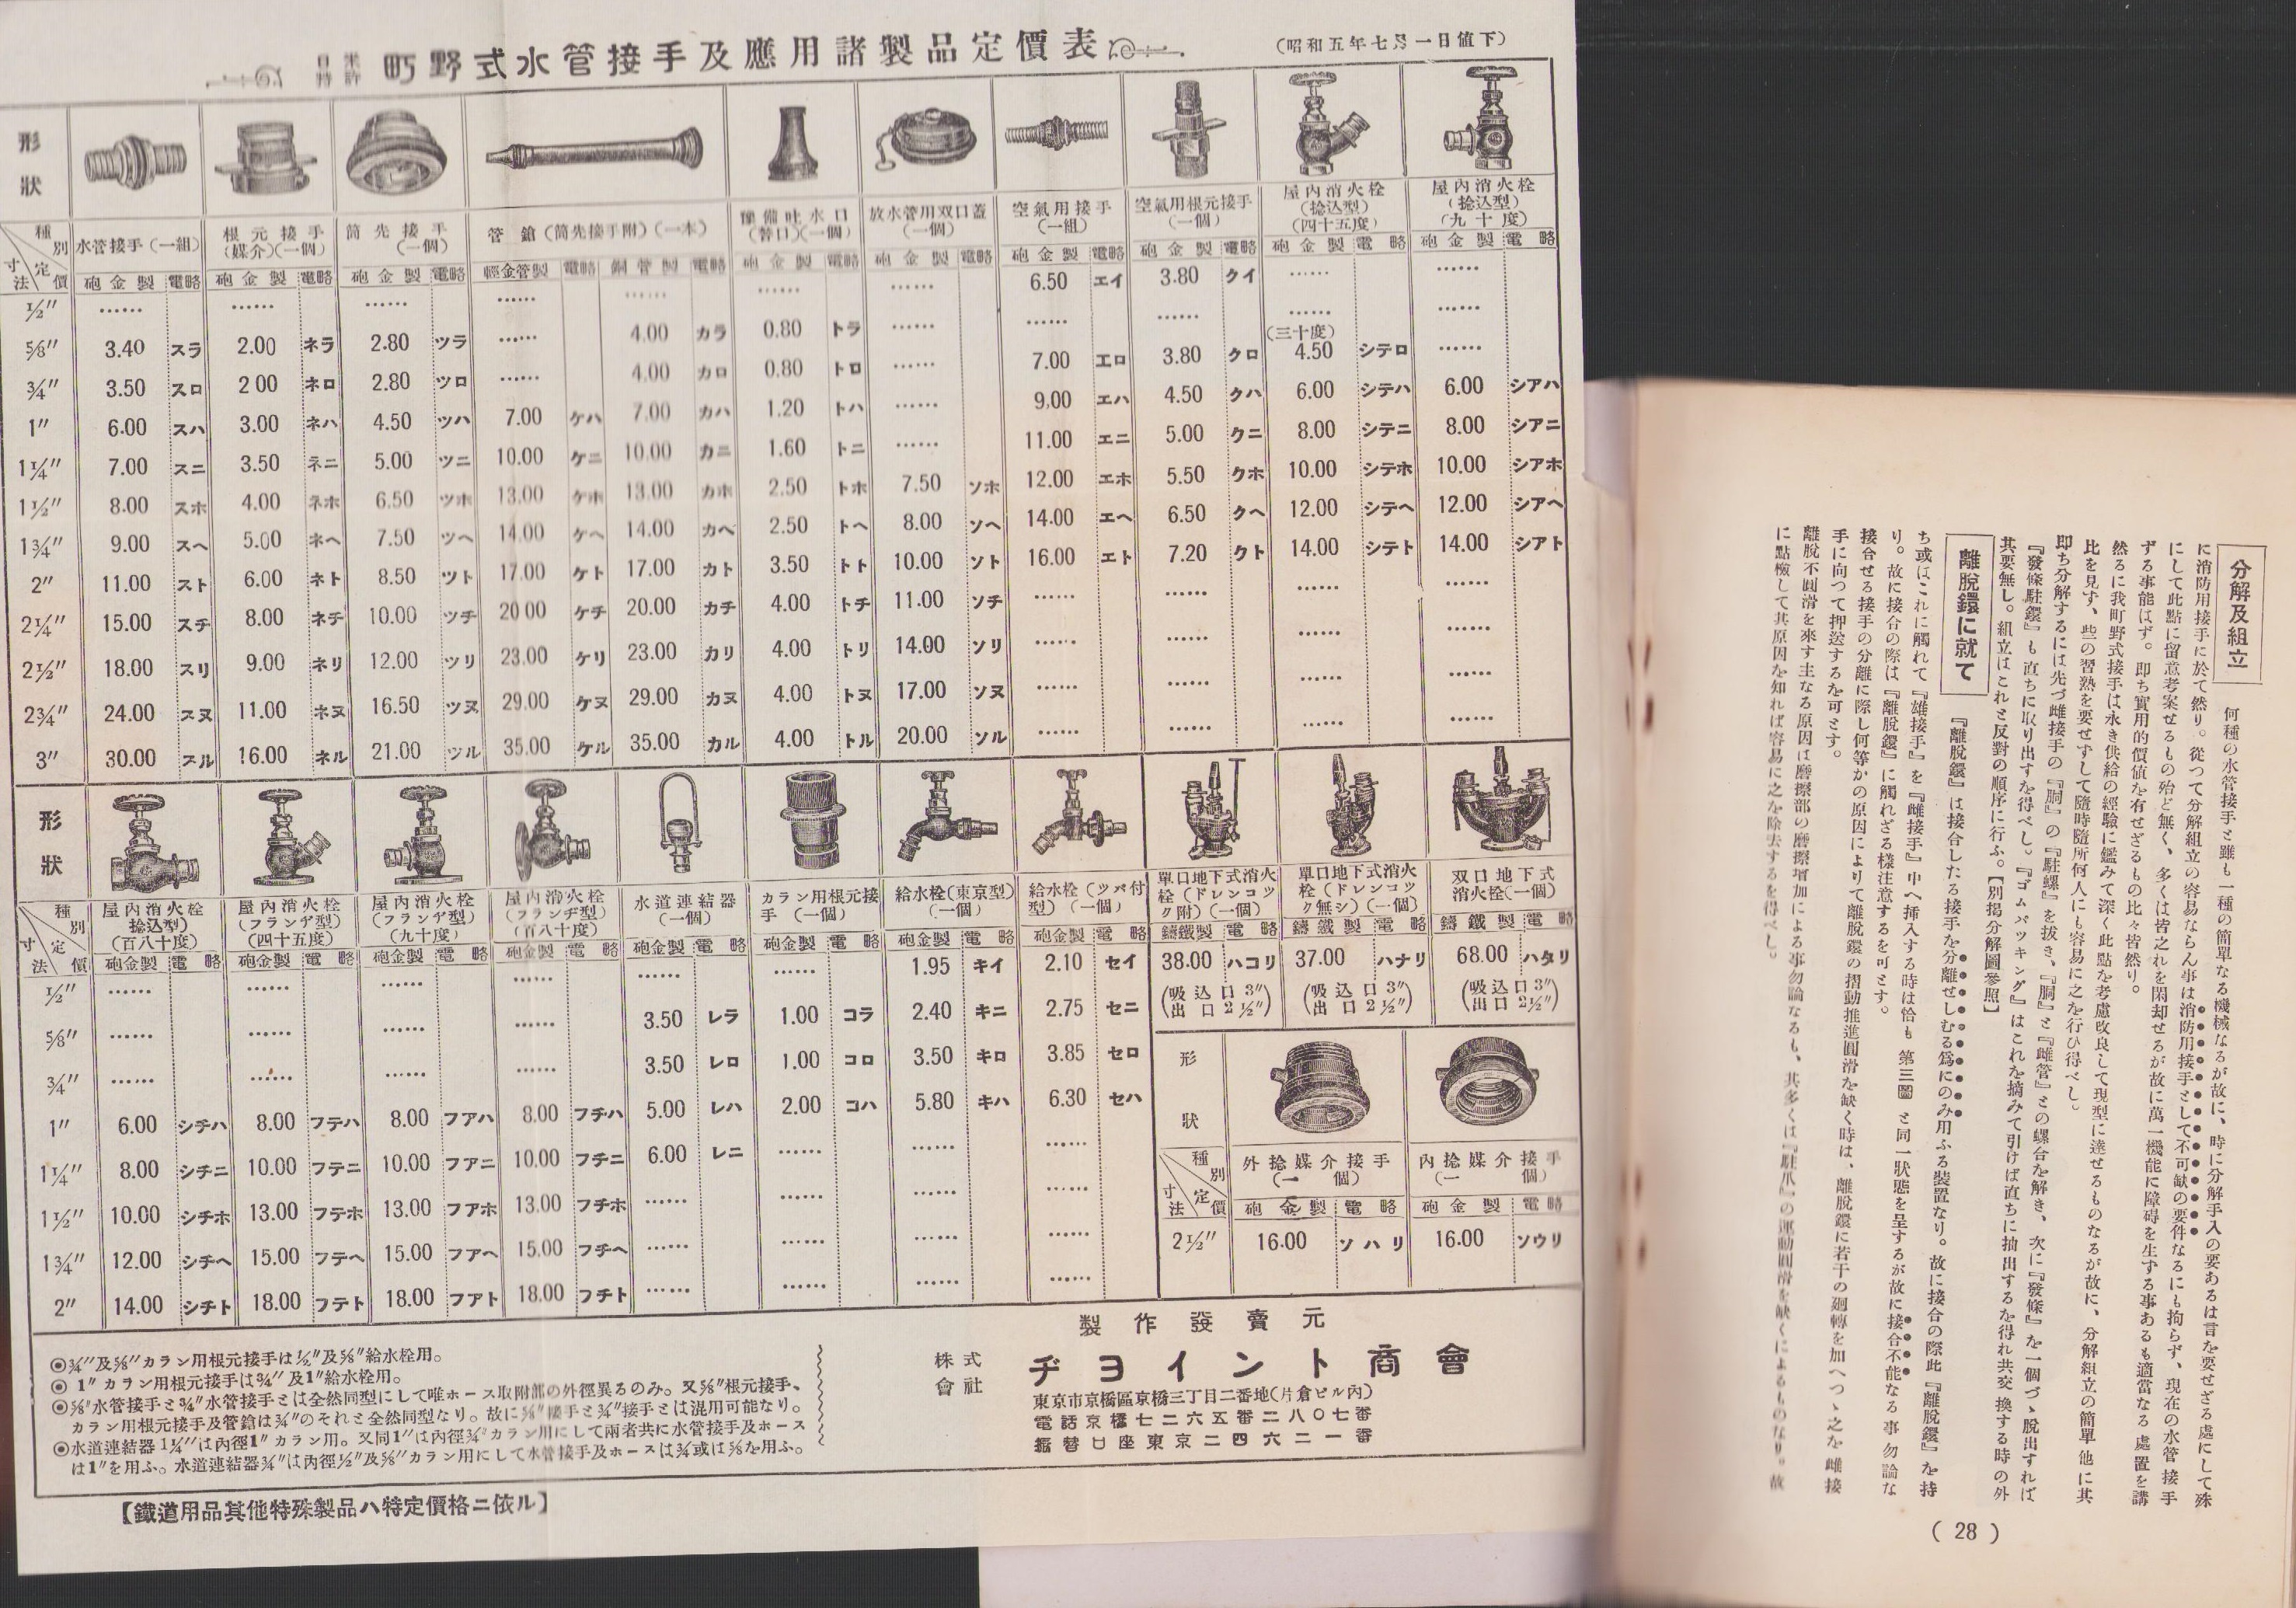 日米特許 町野式水管接手及應用諸製品定價表
(昭和五年七月一日値下)
形狀
種別 定價 寸法
水管接手(一組) 根元接手(媒介)(一個) 筒先接手(一個) 管鎗(筒先接手附)(一本) 豫備吐水口(替口)(一個) 放水管用双口蓋(一個) 空氣用接手(一組) 空氣用根元接手(一個) 屋内消火栓(捻込型)(四十五度) 屋内消火栓(捻込型)(九十度)
砲金製 電略 砲金製 電略 砲金製 電略 輕金管製 電略 銅管製 電略 砲金製 電略 砲金製 電略 砲金製 電略 砲金製 電略 砲金製 電略 砲金製 電略
1/2″ …… …… …… …… …… …… …… 6.50 エイ 3.80 クイ …… ……
5/8″ 3.40 スラ 2.00 ネラ 2.80 ツラ …… 4.00 カラ 0.80 トラ …… …… …… …… ……
3/4″ 3.50 スロ 2 00 ネロ 2.80 ツロ …… 4.00 カロ 0.80 トロ …… 7.00 エロ 3.80 クロ (三十度) 4.50 シテロ ……
1″ 6.00 スハ 3.00 ネハ 4.50 ツハ 7.00 ケハ 7.00 カハ 1.20 トハ …… 9.00 エハ 4.50 クハ 6.00 シテハ 6.00 シアハ
1 1/4″ 7.00 スニ 3.50 ネニ 5.00 ツニ 10.00 ケニ 10.00 カニ 1.60 トニ …… 11.00 エニ 5.00 クニ 8.00 シテニ 8.00 シアニ
1 1/2″ 8.00 スホ 4.00 ネホ 6.50 ツホ 13.00 ケホ 13.00 カホ 2.50 トホ 7.50 ソホ 12.00 エホ 5.50 クホ 10.00 シテホ 10.00 シアホ
1 3/4″ 9.00 スヘ 5.00 ネヘ 7.50 ツヘ 14.00 ケヘ 14.00 カヘ 2.50 トヘ 8.00 ソヘ 14.00 エヘ 6.50 クヘ 12.00 シテヘ 12.00 シアヘ
2″ 11.00 スト 6.00 ネト 8.50 ツト 17.00 ケト 17.00 カト 3.50 トト 10.00 ソト 16.00 エト 7.20 クト 14.00 シテト 14.00 シアト
2 1/4″ 15.00 スチ 8.00 ネチ 10.00 ツチ 20 00 ケチ 20.00 カチ 4.00 トチ 11.00 ソチ …… …… …… ……
2 1/2″ 18.00 スリ 9.00 ネリ 12.00 ツリ 23.00 ケリ 23.00 カリ 4.00 トリ 14.00 ソリ …… …… …… ……
2 3/4″ 24.00 スヌ 11.00 ネヌ 16.50 ツヌ 29.00 ケヌ 29.00 カヌ 4.00 トヌ 17.00 ソヌ …… …… …… ……
3″ 30.00 スル 16.00 ネル 21.00 ツル 35.00 ケル 35.00 カル 4.00 トル 20.00 ソル …… …… …… ……
形狀
種別 定價 寸法
屋内消火栓捻込型)(百八十度) 屋内消火栓(フランヂ型)(四十五度) 屋内消火栓(フランヂ型)(九十度) 屋内消火栓(フランヂ型)(百八十度) 水道連結器(一個) カラン用根元接手(一個) 給水栓(東京型)(一個) 給水栓(ツバ付型)(一個)
砲金製 電略 砲金製 電略 砲金製 電略 砲金製 電略 砲金製 電略 砲金製 電略 砲金製 電略 砲金製 電略
1/2″ …… …… …… …… …… …… 1.95 キイ 2.10 セイ
5/8″ …… …… …… …… 3.50 レラ 1.00 コラ 2.40 キニ 2.75 セニ
3/4″ …… …… …… …… 3.50 レロ 1.00 コロ 3.50 キロ 3.85 セロ
1″ 6.00 シチハ 8.00 フテハ 8.00 フアハ 8.00 フチハ 5.00 レハ 2.00 コハ 5.80 キハ 6.30 セハ
1 1/4″ 8.00 シチニ 10.00 フテニ 10.00 フアニ 10.00 フチニ 6.00 レニ …… …… ……
1 1/2″ 10.00 シチホ 13.00 フテホ 13.00 フアホ 13.00 フチホ …… …… …… ……
1 3/4″ 12.00 シチヘ 15.00 フテヘ 15.00 フアヘ 15.00 フチヘ …… …… …… ……
2″ 14.00 シチト 18.00 フテト 18.00 フアト 18.00 フチト …… …… …… ……
單口地下式消火栓(ドレンコック附)(一個) 單口地下式消火栓(ドレンコック無シ)(一個) 双口地下式消火栓(一個)
鑄鐵製 電略 鑄鐵製 電略 鑄鐵製 電略
38.00 ハコリ 37.00 ハナリ 68.00 ハタリ
(吸込口 3″ 出口 2 1/2″) (吸込口 3″ 出口 2 1/2″) (吸込口 3″ 出口 2 1/2″)
形狀
種別 定價 寸法
外捻媒介接手(一個) 内捻媒介接手(一個)
砲金製 電略 砲金製 電略
2 1/2″ 16.00 ソハリ 16.00 ソウリ
◉3/4″及5/8″カラン用根元接手は1/2″及5/8″給水栓用。
◉ 1″カラン用根元接手は3/4″及1″給水栓用。
◉5/8″水管接手と3/4″水管接手とは全然同型にして唯ホース取附部の外徑異るのみ。又5/8″根元接手、
カラン用根元接手及管鎗は3/4″のそれと全然同型なり。故に5/8″接手と3/4″接手とは混用可能なり。
◉水道連結器1 1/4″は内徑1″カラン用。又同1″は内徑3/4″カラン用にして兩者共に水管接手及ホース
は1″を用ふ。水道連結器3/4″は内徑1/2″及5/8″カラン用にして水管接手及ホースは3/4或は5/8を用ふ。
【鐵道用品其他特殊製品ハ特定價格ニ依ル】
製作發賣元
株式會社 ヂョイント商會
東京市京橋區京橋三丁目二番地(片倉ビル内)
電話京橋七二六五番二八〇七番
振替口座東京二四六二一番
分解及組立 何種の水管接手と雖も一種の簡單なる機械なるが故に、時に分解手入の要あるは言を要せざる處にして殊
に消防用接手に於て然り。從つて分解組立の容易ならん事は消防用接手として不可缺の要件なるにも拘らず、現在の水管接手
にして此點に留意考案せるもの殆ど無く、多くは皆之れを閑却せるが故に萬一機能に障碍を生ずる事あるも適當なる處置を講
ずる事能はず。即ち實用的價値を有せざるもの比々皆然り。
然るに我町野式接手は永き供給の經驗に鑑みて深く此點を考慮改良して現型に達せるものなるが故に、分解組立の簡單他に其
比を見ず、些の習熟を要せずして隨時隨所何人にも容易に之を行ひ得べし。
即ち分解するには先づ雌接手の『胴』の『駐螺』を拔き、『胴』と『雌管』との螺合を解き、次に『發條』を一個づゝ脱出すれば
『發條駐鐶』も直ちに取り出すを得べし。『ゴムパッキング』はこれを摘みて引けば直ちに抽出するを得れ共交換する時の外
其要無し。組立はこれと反對の順序に行ふ。【別揭分解圖參照】
離脫鐶に就て 『離脫鐶』は接合したる接手を分離せしむる爲にのみ用ふる裝置なり。故に接合の際此『離脫鐶』を持
ち或はこれに觸れて『雄接手』を『雌接手』中へ挿入する時は恰も 第三圖 と同一狀態を呈するが故に接合不能なる事勿論な
り。故に接合の際は『離脫鐶』に觸れざる樣注意するを可とす。
接合せる接手の分離に際し何等かの原因によりて離脫鐶の摺動推進圓滑を缺く時は、離脫鐶に若干の廻轉を加へつゝ之を雌接
手に向つて押送するを可とす。
離脫不圓滑を來す主なる原因は磨擦部の磨擦增加による事勿論なるも、其多くは『駐爪』の運動圓滑を缺くによるものなり。故
に點檢して其原因を知れば容易に之を除去するを得べし。
( 28 )